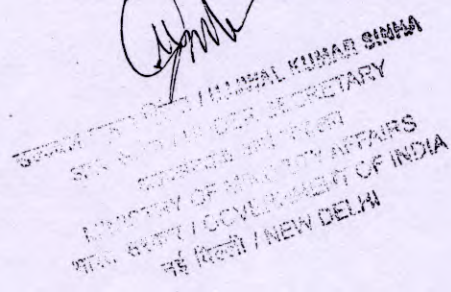 / UJJWAL KUMAR SINHA
/ UNDER SECRETARY
कार्य मंत्रालय
MINISTRY OF MINORITY AFFAIRS
भारत सरकार / GOVERNMENT OF INDIA
नई दिल्ली / NEW DELHI